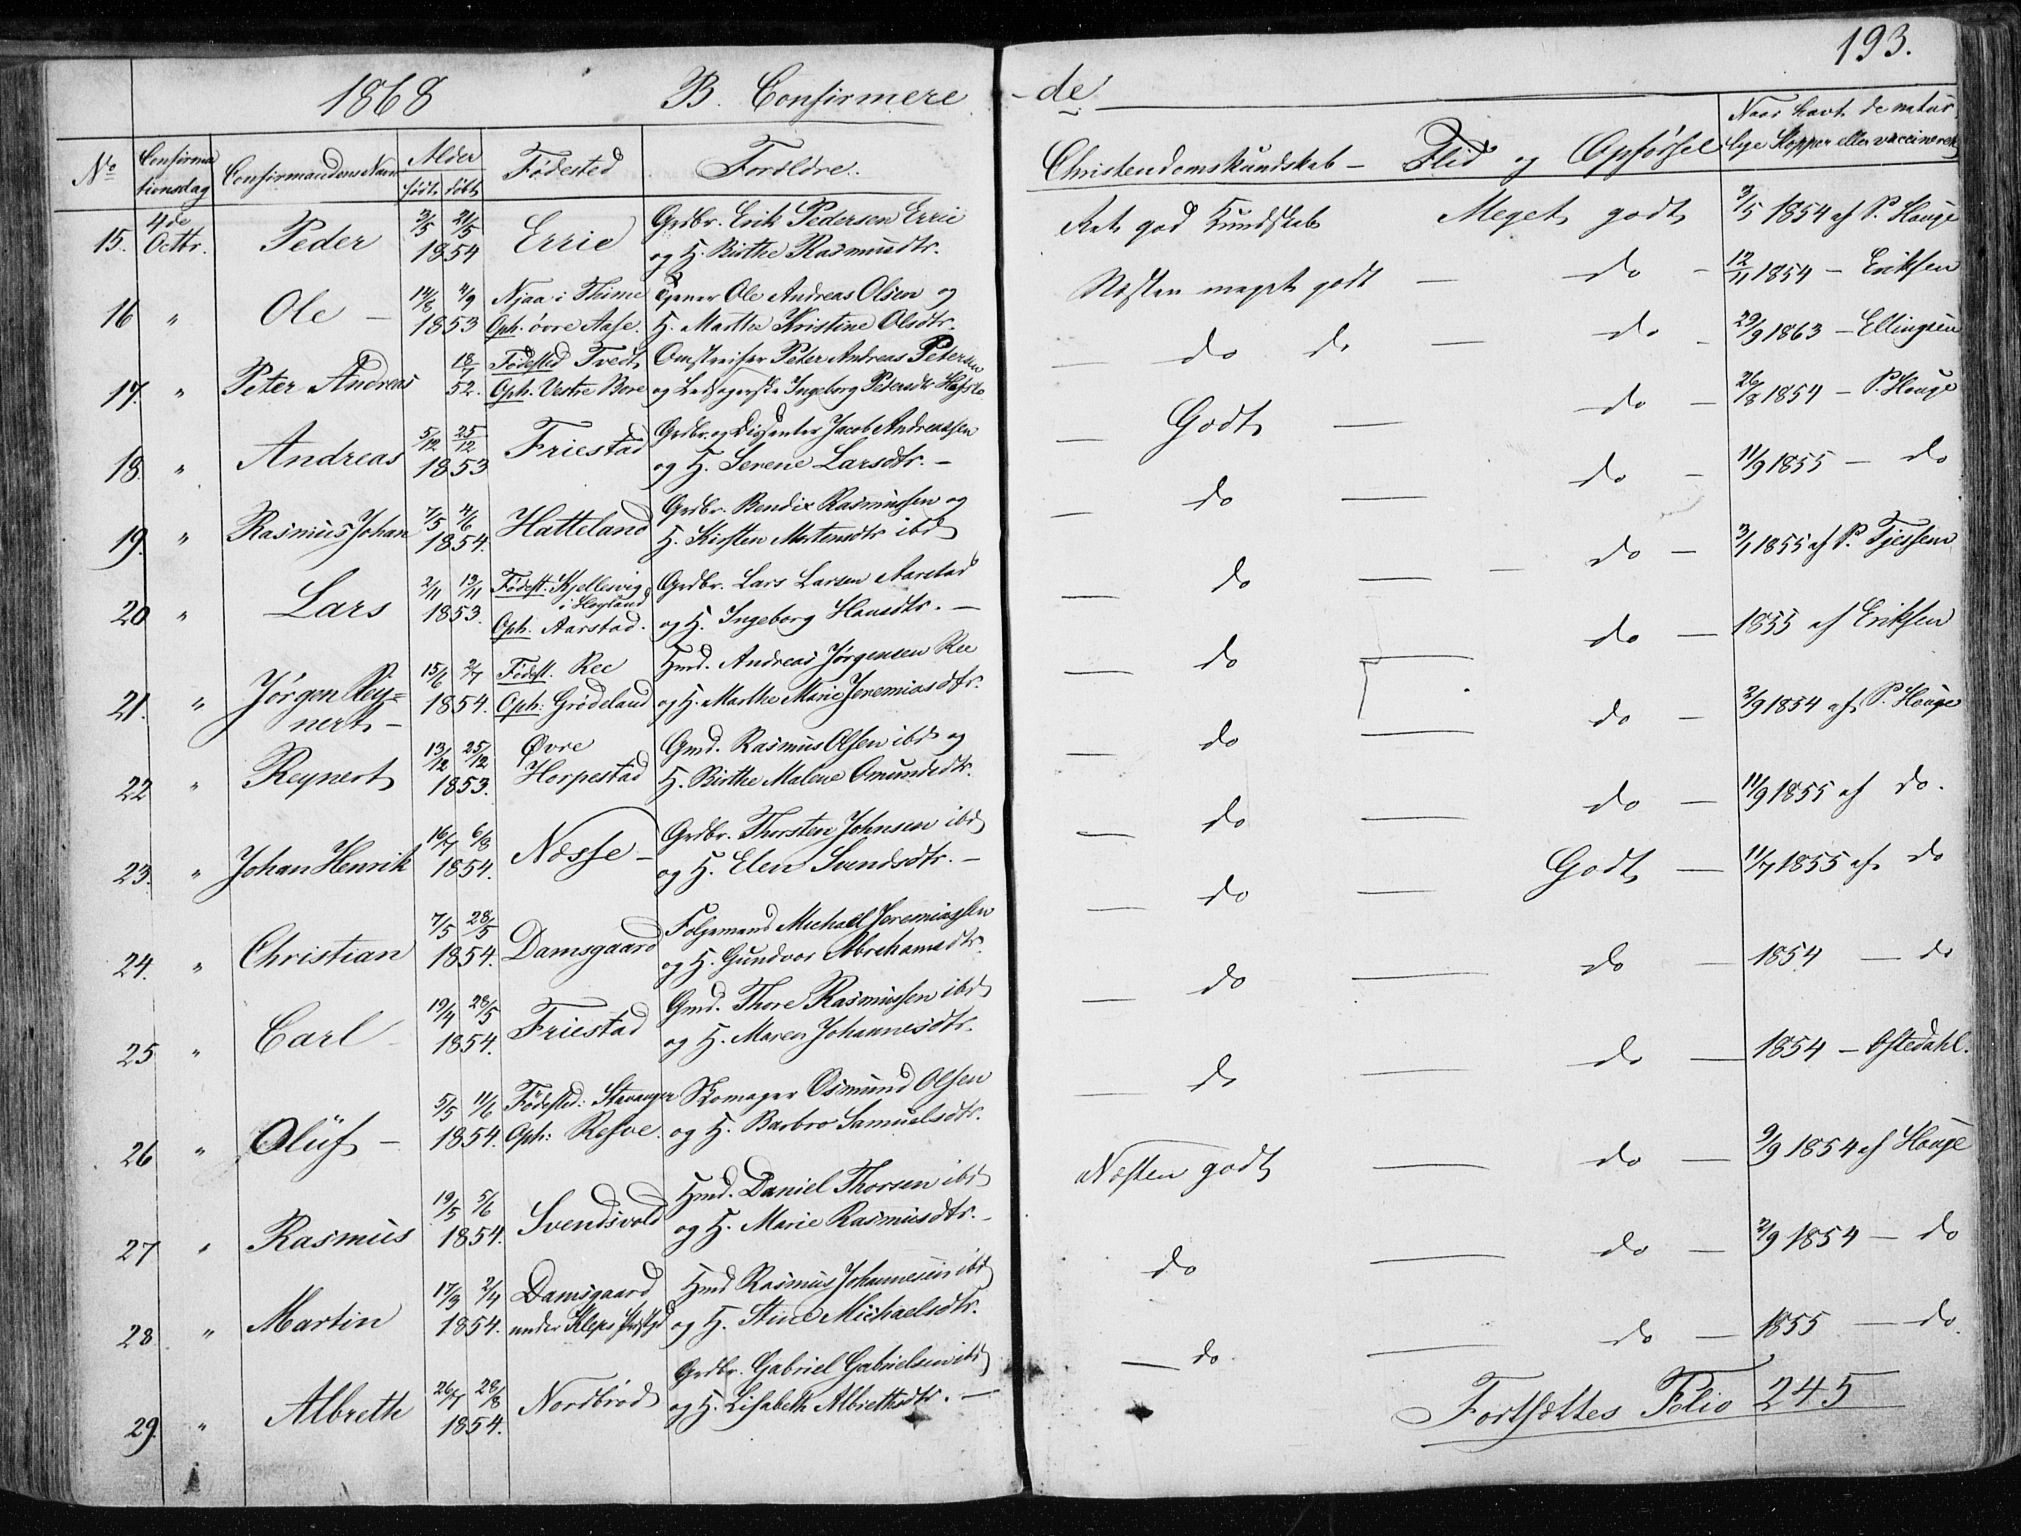 193.
1868 B. Confirmere - de
No Confirmationsdag Confirmandens Navn Alder født døbt Fødested Forældre. Christendomskundskab - Flid og Opførsel Naar havt de naturlige Kopper eller vaccineret
15. 4de Octbr. Peder 3/5 21/5 1854 Errie Grdbr. Erik Pedersen Errie og H. Birthe Rasmusdtr. Ret god Kundskab Meget godt 3/5 1854 af P. Hauge
16 " Ole - 14/6 4/9 1853 Njaa i Thime Oph. øvre Aase. Tjener Ole Andreas Olsen og H. Marthe Kristine Olsdtr. Næsten meget godt - do - 12/11 1854 - Eriksen
17. " Peter Andreas 18/7 52. Fødested Tvedt Oph. Vestre Bore Omstreifer Peter Andreas Petersen og Ledsagerske Ingeborg Petersdtr. - do do - do - 29/9 1863 - Ellingsen
18. " Andreas 5/12 25/12 1853 Friestad Grdbr. og Dissenter Jacob Andreassen og H. Serene Larsdtr. - - Godt - do - 26/8 1854 - P. Hauge
19. " Rasmus Johan 7/5 4/6 1854. Hatteland Grdbr. Bendix Rasmussen og H. Kirsten Mortensdtr ibd - do - do - 11/9 1855 - do
20 " Lars 2/11 13/11 1853. Fødest. Kjellesvig i Høgland Oph. Aarstad. Grdbr. Lars Larsen Aarstad og H. Ingeborg Hansdtr. - - do - - do - 3/1 1855 af P. Tjessem
21. " Jørgen Reynert - 15/6 2/7 1854. Fødest. Ree Oph: Grødeland Hmd. Andreas Jørgensen Ree og H. Marthe Marie Jeremiasdtr. - do - do - 1855 af Eriksen
22 " Reynert 13/12 25/12 1853. Øvre Horpestad Gmd. Rasmus Olsen ibd og H. Birthe Malene Omundsdtr. - do - do - 2/9 1854 af P. Hauge
23. " Johan Henrik 16/7 6/8 1854. Næsse - Grdbr. Thorsten Johnsen ibd og H. Elen Svendsdtr. - - do - do - 11/9 1855 af do.
24. " Christian 7/5 28/5 1854. Damsgaard Følgemand Michael Jeremiassen og H. Gundvor Abrahamsdtr. - do - Godt - 11/7 1855 af do
25 " Carl - 19/4 28/5 1854. Friestad Gmd. Thore Rasmussen ibd og H. Maren Johannesdtr. - do - do - 1854 - do
26 " Oluf - 5/5 11/6 1854. Fødested: Stavanger Oph: Refve. Skomager Osmund Olsen og H. Barbro Samuelsdtr. - do - do - 1854 - Oftedahl.
27 " Rasmus 19/5 5/6 1854. Svendsvold Hmd. Daniel Thorsen ibd og H. Marie Rasmusdtr. - Næsten godt - do - 9/9 1854 af Hauge
28 " Martin 17/3 2/4 1854. Damsgaard under Klepp Præstgd Hmd Rasmus Johannesen ibd og H. Stine Michaelsdtr. do - do - 2/9 1854 - do
29. " Albreth 26/7 28/8 1854. Nordbrød Grdbr. Gabriel Gabrielsen ibd og H. Lisabeth Albrethsdtr. - - do - do - 1855 - do.
Fortsættes Folio 245